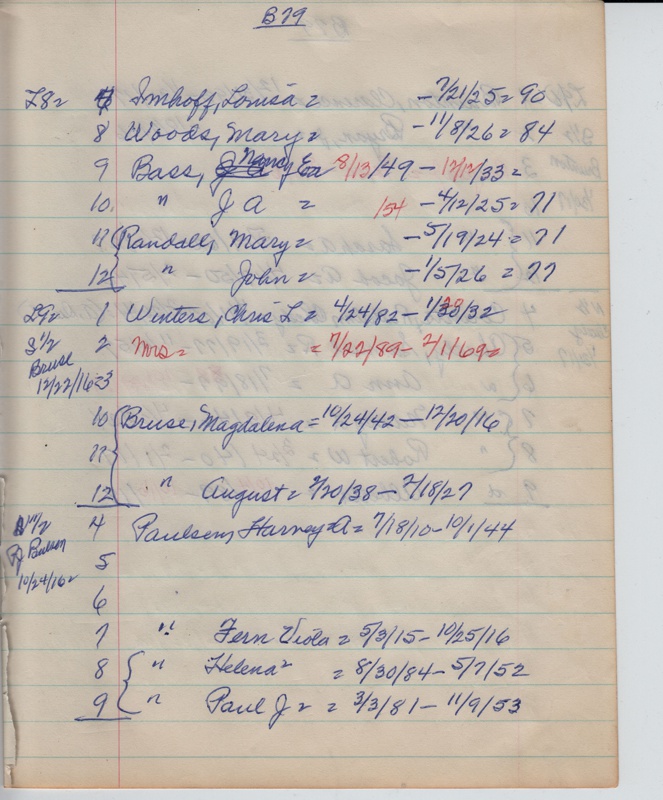 B79
L8= 7 Imhoff, Louisa = -7/21/25 = 90
8 Woods, Mary = -11/8/26 = 84
9 Bass, Nancy E 8/13/49 - 12/12/33 =
10 " J A = 154 - 4/12/25 = 71
11 Randall, Mary = -5/19/24 = 71
12 " John = -1/5/26 = 77
L9= 1 Winters, Chris L = 4/24/82 - 1/28/32
S 1/2 2 Mrs = = 7/22/89 - 2/1/69 =
Bruse
12/22/16 = 3
10 Bruse, Magdalena = 10/24/42 - 12/20/16
11
12 " August = 2/20/38 - 2/18/27
N 1/2 4 Paulsen, Harvey A = 7/18/10 - 10/1/44
Paulsen 5
10/24/16 =
6
7 " Fern Viola = 5/3/15 - 10/25/16
8 " Helena = 8/30/84 - 5/7/52
9 " Paul J = 3/3/81 - 11/9/53